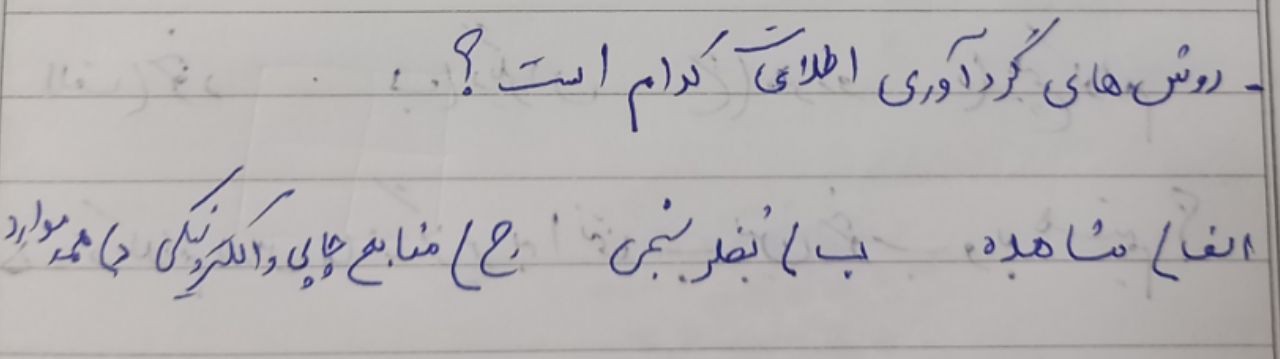 - روش های گردآوری اطلاعات کدام است؟
الف) مشاهده ب) نظر سنجی ج) منابع چاپی و الکترونیکی د) همه موارد